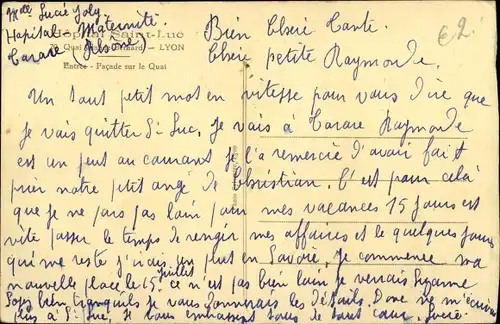 Mlle Lucie Joly
Hopital Maternité
Tarare (Rhône)
Hôpital Saint-Luc
Quai - LYON
Entrée - Façade sur le Quai
€2
Bien Chère Tante
Chère petite Raymonde.
Un tout petit mot en vitesse pour vous dire que
je vais quitter St Luc. Je vais à Tarare Raymonde
est un peut au courant je l'a remercie d'avoir fait
prier notre petit ange de Christian. C'est pour celà
que je ne pars pas loin pour mes vacances 15 jours est
vite passer le temps de rengir mes affaires et le quelques jours
qui me reste j'irais un peut en Savoie, je commence ma
nouvelle place le 15 juillet ce n'est pas bien loin je verrais Suzanne
Soyez bien tranquils je vous donnerais les détails. Donc ne m'écrivez
plus à St Luc, je vous embrassent tous de tout cœur. Lucie.